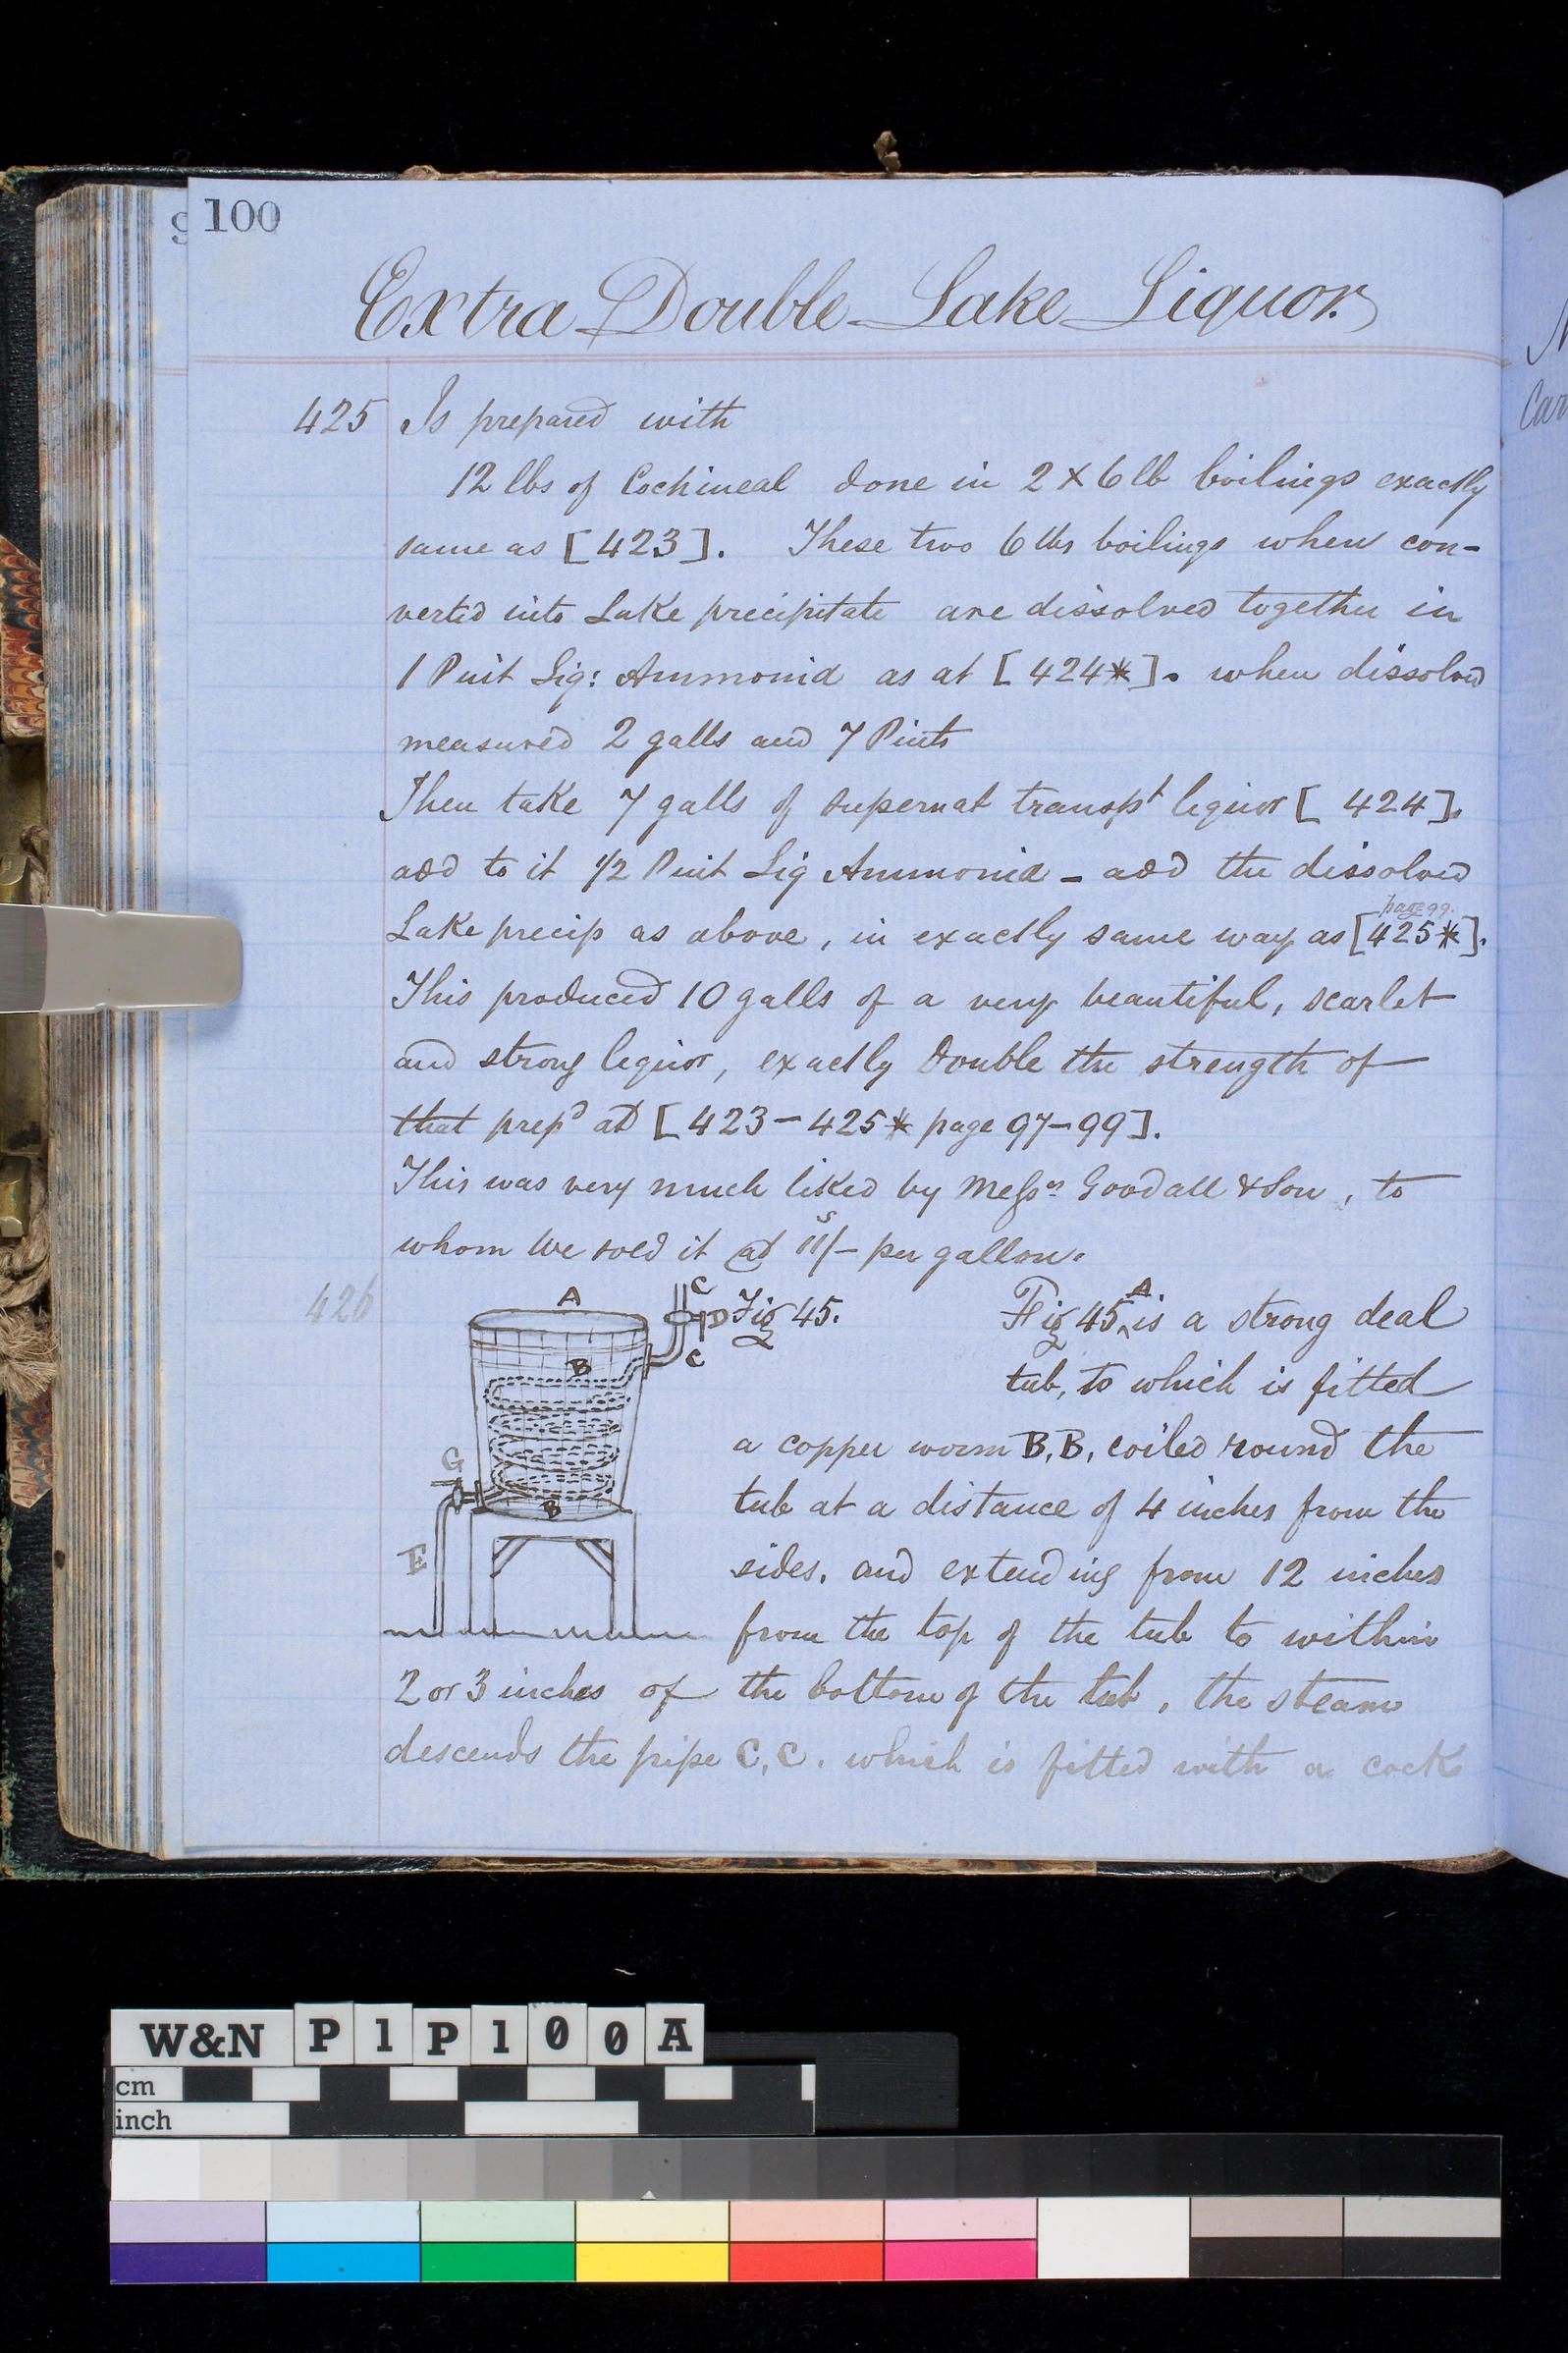 9
100
Extra Double Lake Liquor.
425 Is prepared with
12 lbs of Cochineal done in 2 X 6 lb boilings exactly
same as [423]. These two 6 lbs boilings when con-
verted into Lake precipitate are dissolved together in
1 Pint Liq: Ammonia as at [424*]. when dissolved
measured 2 galls and 7 Pints
Then take 7 galls of supernat transpt liquor [424].
add to it 1/2 Pint Liq Ammonia - add the dissolved
page 99.
Lake precip as above, in exactly same way as [425*].
This produced 10 galls of a very beautiful, scarlet
and strong liquor, exactly double the strength of
that prepd at [423-425* page 97-99].
This was very much liked by Messrs Goodall & Son, to
whom we sold it at 11s/- per gallon.
426
A
C
D
Fig 45.
C
B
G
B
E
Fig 45, A is a strong deal
tub, to which is fitted
a copper worm B, B, coiled round the
tub at a distance of 4 inches from the
sides, and extending from 12 inches
from the top of the tub to within
2 or 3 inches of the bottom of the tub, the steam
descends the pipe C, C. which is fitted with a cock
Car
W&N P1P100A
cm
inch